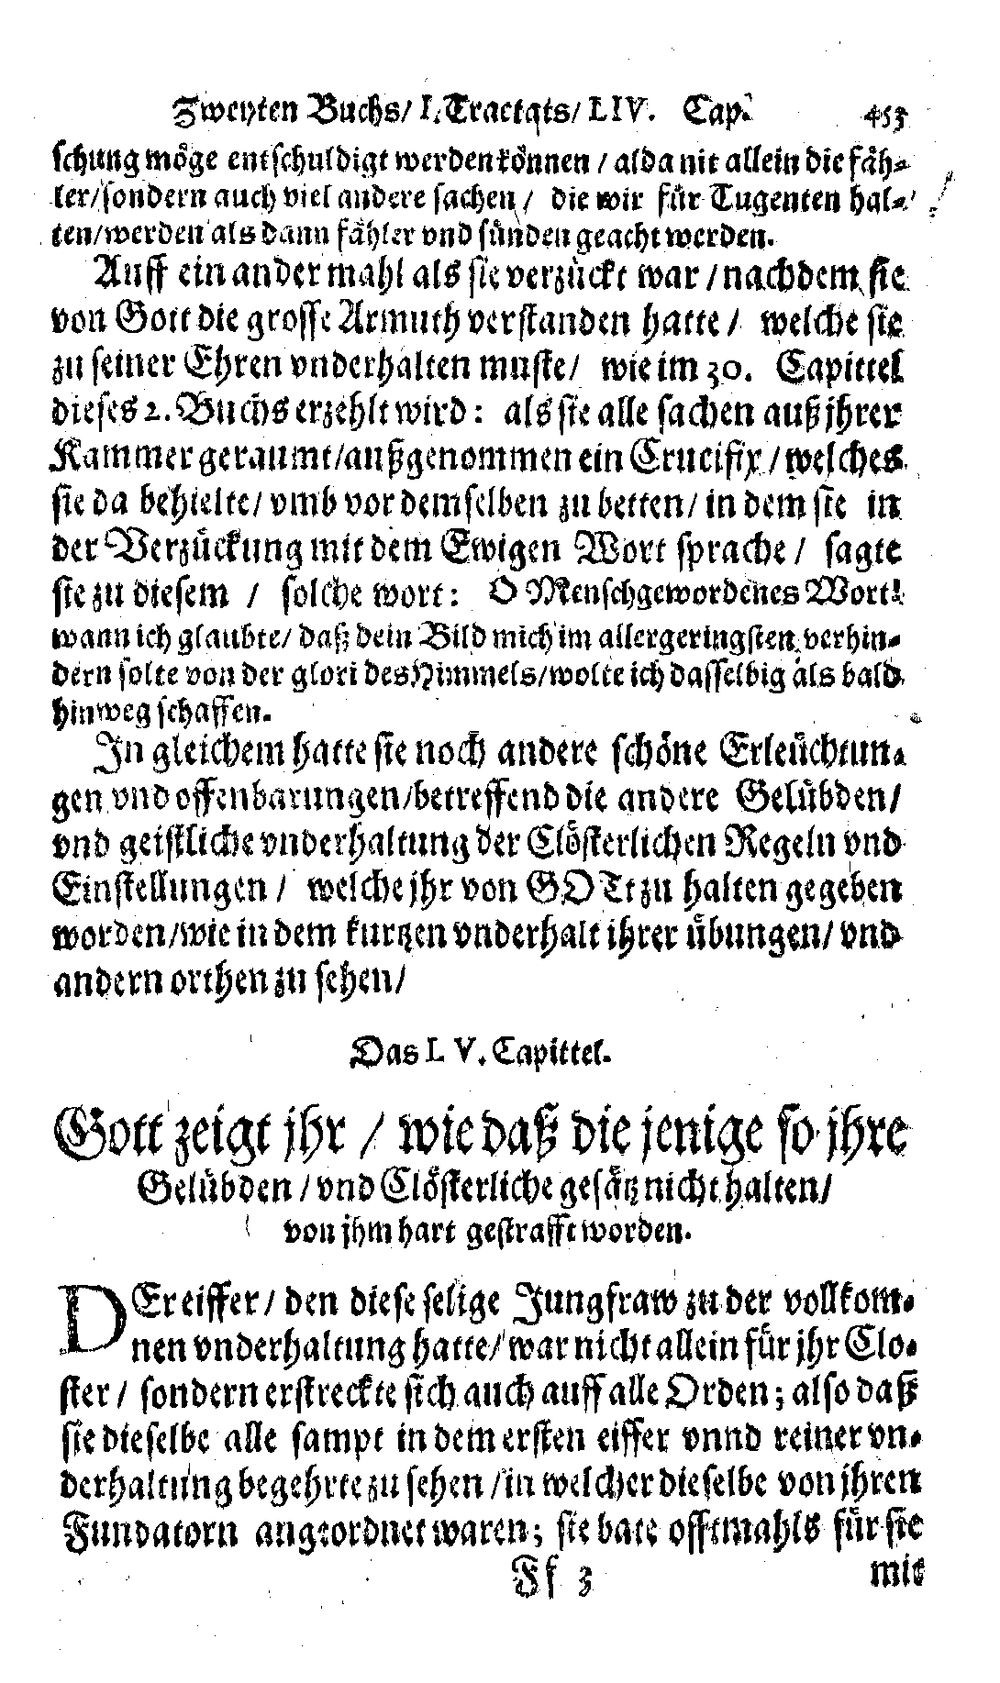 Zweyten Buchs/ I. Tractats/ LIV. Cap. 453
schung möge entschuldigt werden können / alda nit allein die fäh-
ler/ sondern auch viel andere sachen / die wir für Tugenten hal-
ten/werden als dann fähler vnd sünden geacht werden.
Auff ein ander mahl als sie verzückt war / nachdem sie
von Gott die grosse Armuth verstanden hatte / welche sie
zu seiner Ehren vnderhalten muste/ wie im 30. Capittel
dieses 2. Buchs erzehlt wird: als sie alle sachen auß jhrer
Kammer geraumt/außgenommen ein Crucifix / welches
sie da behielte/ vmb vor demselben zu betten/ in dem sie in
der Verzückung mit dem Ewigen Wort sprache / sagte
sie zu diesem / solche wort: O Menschgewordenes Wort!
wann ich glaubte/ daß dein Bild mich im allergeringsten verhin-
dern solte von der glori des Himmels/wolte ich dasselbig als bald
hinweg schaffen.
In gleichem hatte sie noch andere schöne Erleüchtun-
gen vnd offenbarungen/betreffend die andere Gelübden/
vnd geistliche vnderhaltung der Clösterlichen Regeln vnd
Einstellungen / welche jhr von GOTt zu halten gegeben
worden/wie in dem kurtzen vnderhalt ihrer übungen/ vnd
andern orthen zu sehen/
Das LV. Capittel.
Gott zeigt jhr / wie daß die jenige so jhre
Gelübden / vnd Clösterliche gesätz nicht halten/
von jhm hart gestrafft worden.
DEr eiffer/ den diese selige Jungfraw zu der vollkom-
nen vnderhaltung hatte/ war nicht allein für jhr Clo-
ster / sondern erstreckte sich auch auff alle Orden; also daß
sie dieselbe alle sampt in dem ersten eiffer vnnd reiner vn-
derhaltung begehrte zu sehen /in welcher dieselbe von jhren
Fundatorn angeordnet waren; sie bate offtmahls für sie
Ff 3 mit